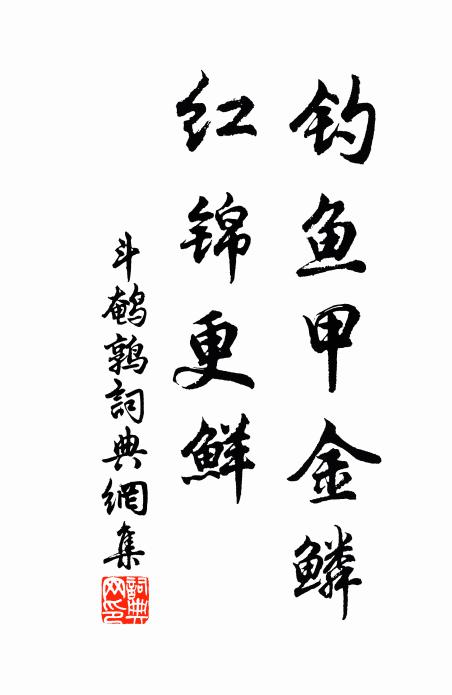 钓鱼甲金鳞
红锦更鲜
斗鹌鹑詞典網集
詞典網印